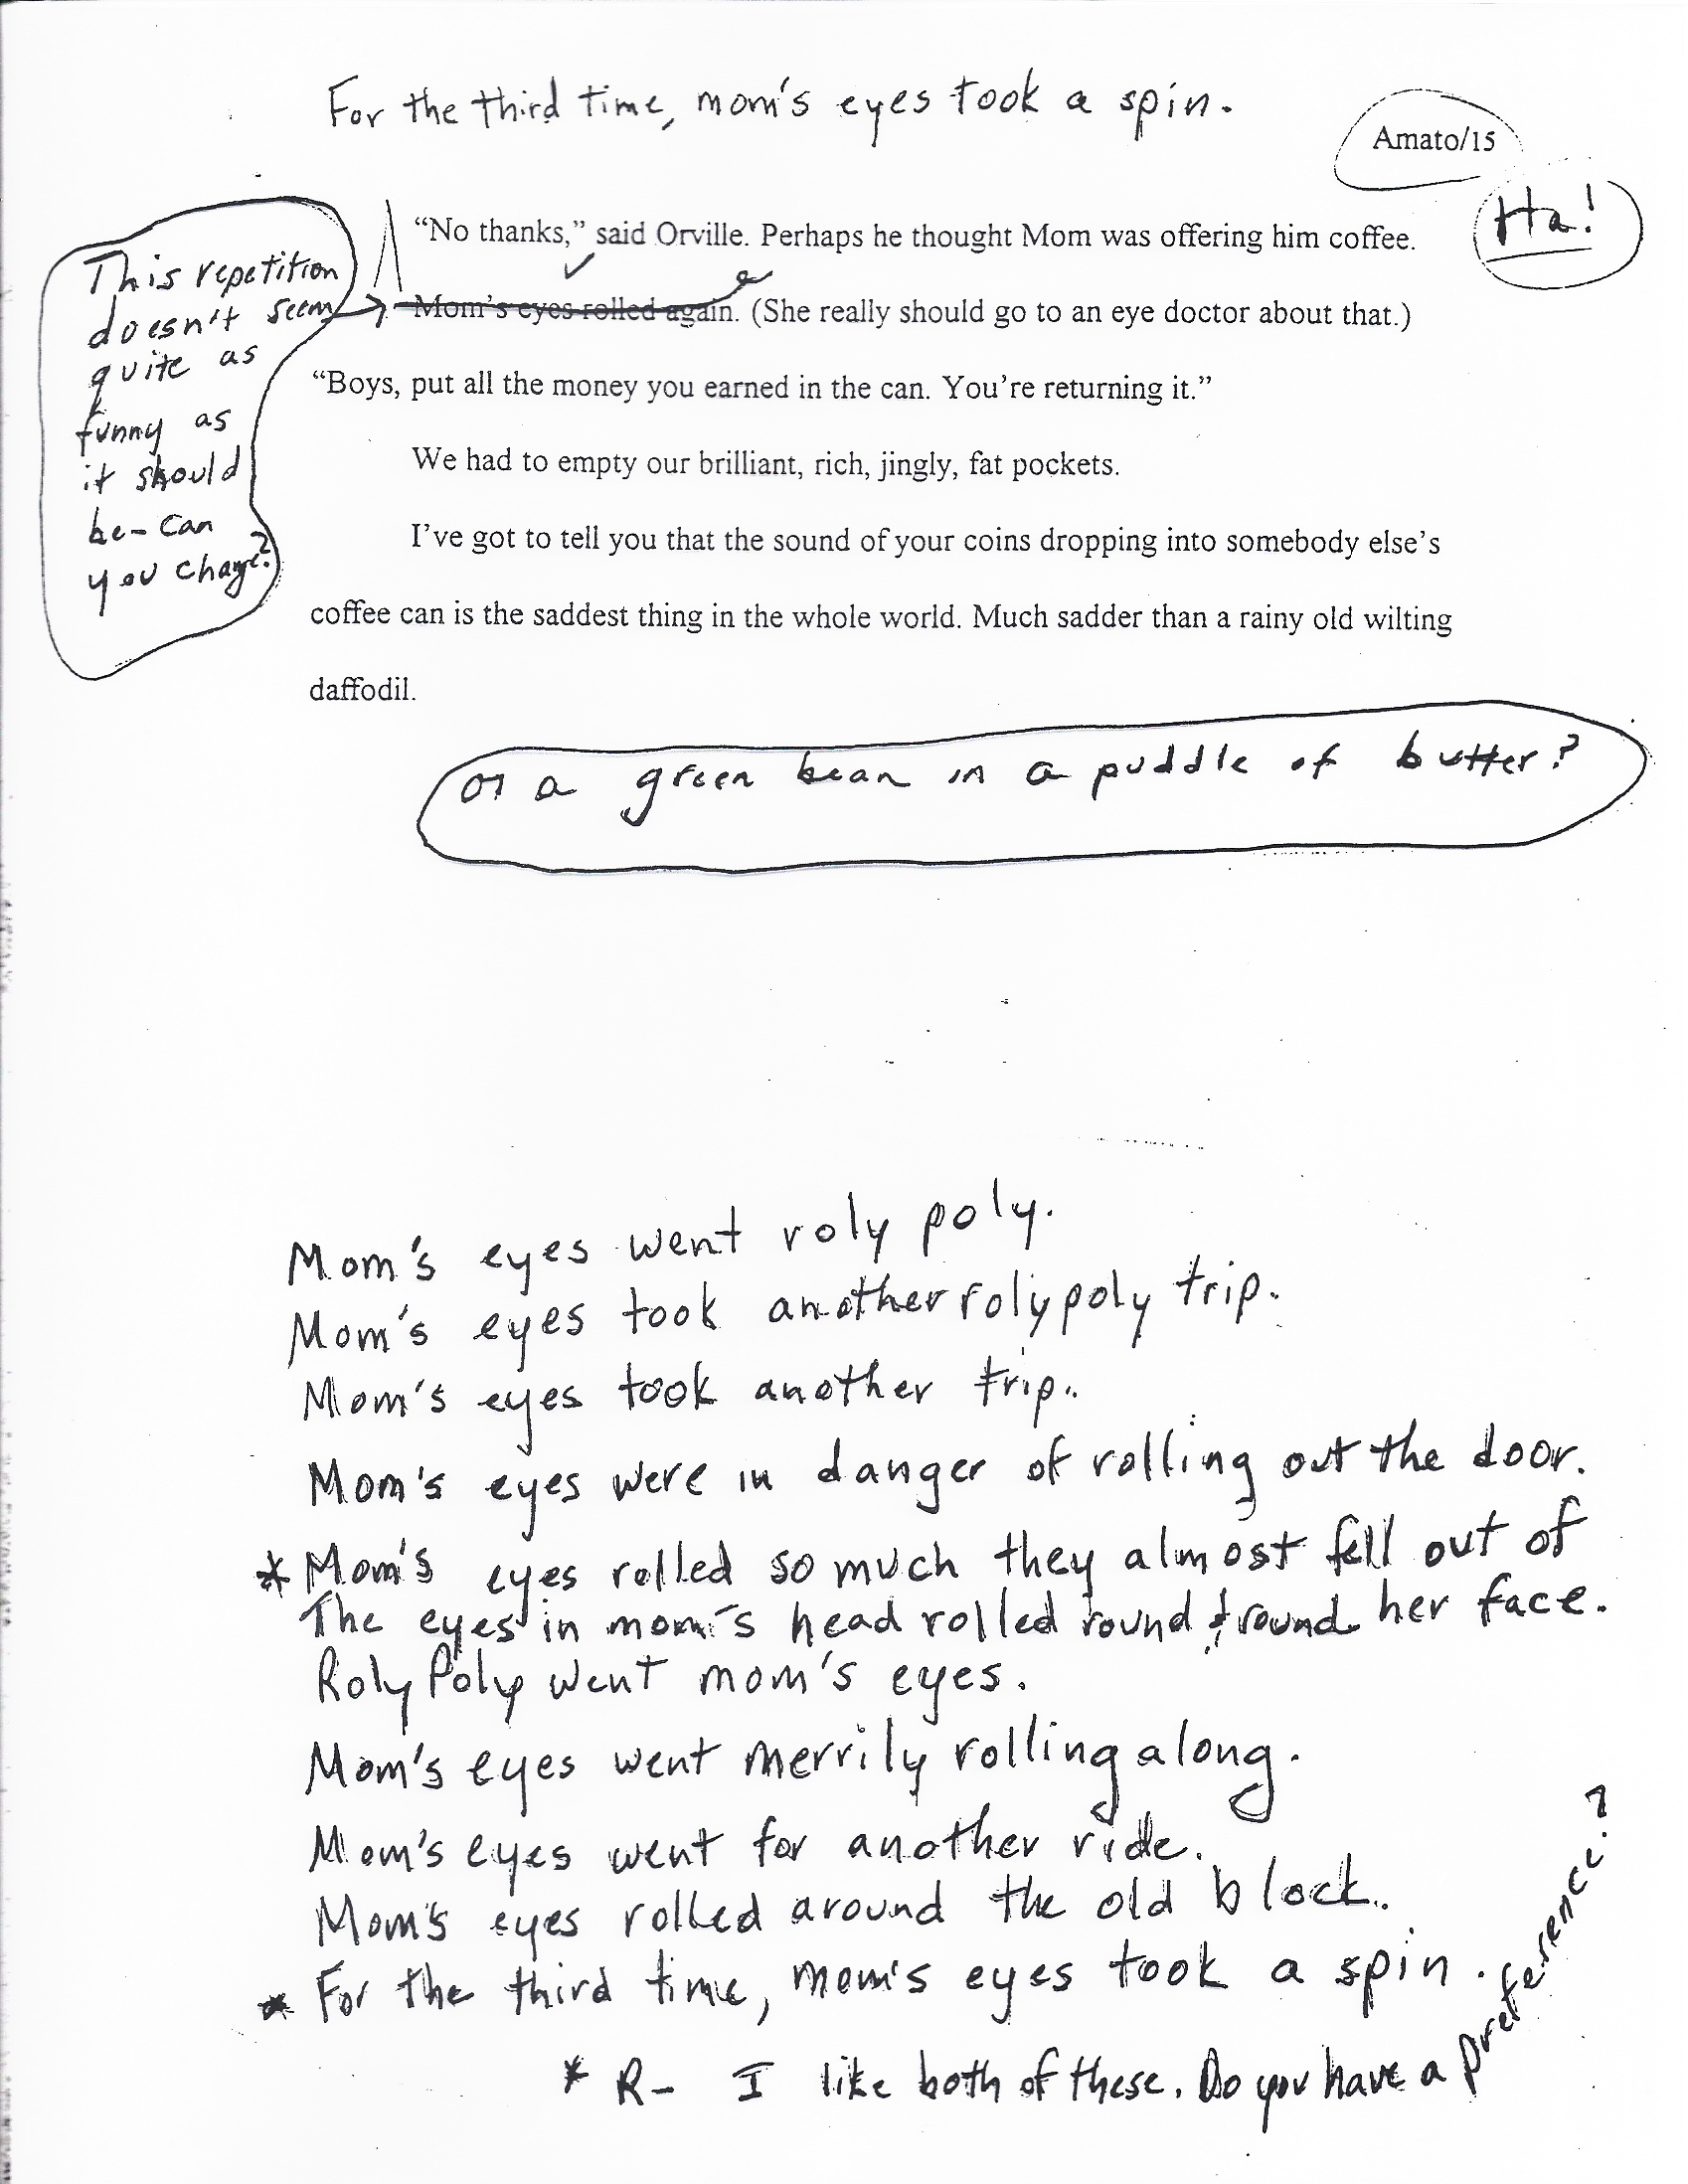 For the third time, mom's eyes took a spin.
Amato/15
Ha!
“No thanks,” said Orville. Perhaps he thought Mom was offering him coffee.
Mom's eyes rolled again. (She really should go to an eye doctor about that.)
“Boys, put all the money you earned in the can. You're returning it.”
We had to empty our brilliant, rich, jingly, fat pockets.
I've got to tell you that the sound of your coins dropping into somebody else's
coffee can is the saddest thing in the whole world. Much sadder than a rainy old wilting
daffodil.
This repetition
doesn't seem
quite as
funny as
it should
be – can
you change?
or a green bean in a puddle of butter?
Mom's eyes went roly poly.
Mom's eyes took another rolypoly trip.
Mom's eyes took another trip.
Mom's eyes were in danger of rolling out the door.
* Mom's eyes rolled so much they almost fell out of
her face.
The eyes in mom's head rolled round & round
Roly Poly went mom's eyes.
Mom's eyes went merrily rolling along.
Mom's eyes went for another ride.
Mom's eyes rolled around the old block.
* For the third time, mom's eyes took a spin.
* R – I like both of these. Do you have a preference?